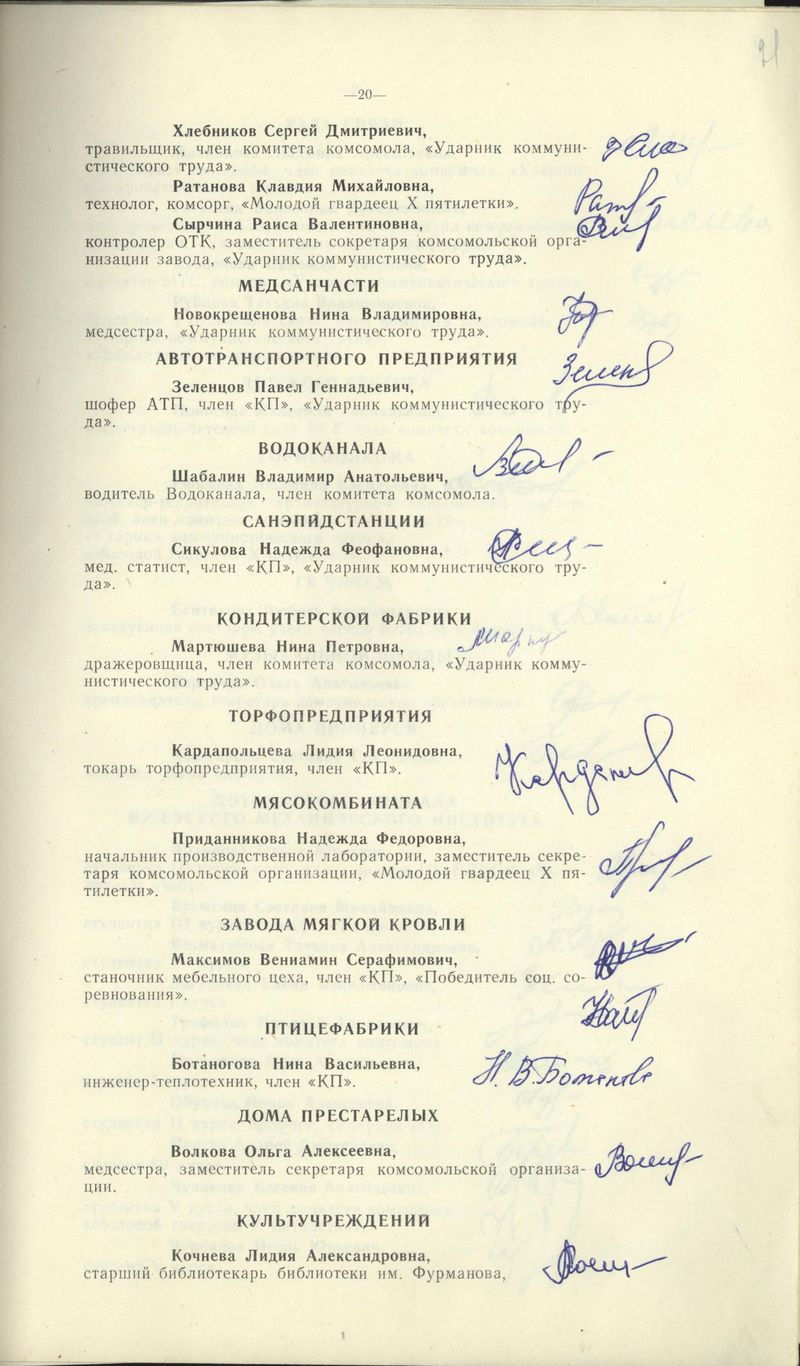 —20—
Хлебников Сергей Дмитриевич,
травильщик, член комитета комсомола, «Ударник коммуни-
стического труда».
Ратанова Клавдия Михайловна,
технолог, комсорг, «Молодой гвардеец X пятилетки».
Сырчина Раиса Валентиновна,
контролер ОТК, заместитель сокретаря комсомольской орга-
низации завода, «Ударник коммунистического труда».
МЕДСАНЧАСТИ
Новокрещенова Нина Владимировна,
медсестра, «Ударник коммунистического труда».
АВТОТРАНСПОРТНОГО ПРЕДПРИЯТИЯ
Зеленцов Павел Геннадьевич,
шофер АТП, член «КП», «Ударник коммунистического тру-
да».
ВОДОКАНАЛА
Шабалин Владимир Анатольевич,
водитель Водоканала, член комитета комсомола.
САНЭПИДСТАНЦИИ
Сикулова Надежда Феофановна,
мед. статист, член «КП», «Ударник коммунистического тру-
да».
КОНДИТЕРСКОЙ ФАБРИКИ
Мартюшева Нина Петровна,
дражеровщица, член комитета комсомола, «Ударник комму-
нистического труда».
ТОРФОПРЕДПРИЯТИЯ
Кардапольцева Лидия Леонидовна,
токарь торфопредприятия, член «КП».
МЯСОКОМБИНАТА
Приданникова Надежда Федоровна,
начальник производственной лаборатории, заместитель секре-
таря комсомольской организации, «Молодой гвардеец X пя-
тилетки».
ЗАВОДА МЯГКОЙ КРОВЛИ
Максимов Вениамин Серафимович,
станочник мебельного цеха, член «КП», «Победитель соц. со-
ревнования».
ПТИЦЕФАБРИКИ
Ботаногова Нина Васильевна,
инженер-теплотехник, член «КП».
ДОМА ПРЕСТАРЕЛЫХ
Волкова Ольга Алексеевна,
медсестра, заместитель секретаря комсомольской организа-
ции.
КУЛЬТУЧРЕЖДЕНИЙ
Кочнева Лидия Александровна,
старший библиотекарь библиотеки им. Фурманова,